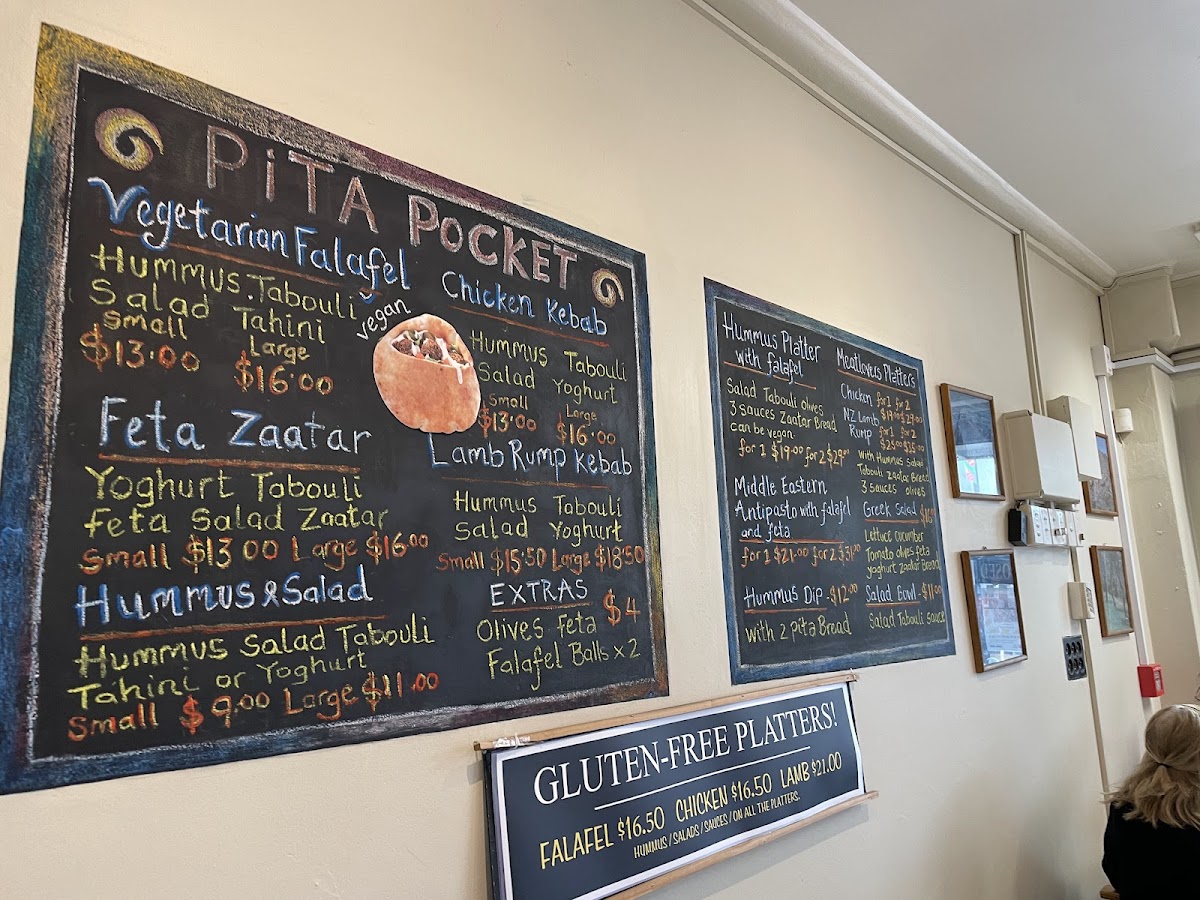 PiTA POCKET
Vegetarian Falafel
Hummus Tabouli
Salad Tahini
Small Large
$13.00 $16.00
vegan
Feta Zaatar
Yoghurt Tabouli
Feta Salad Zaatar
Small $13.00 Large $16.00
Hummus & Salad
Hummus Salad Tabouli
Tahini or Yoghurt
Small $9.00 Large $11.00
Chicken Kebab
Hummus Tabouli
Salad Yoghurt
Small Large
$13.00 $16.00
Lamb Rump Kebab
Hummus Tabouli
Salad Yoghurt
Small $15.50 Large $18.50
EXTRAS $4
Olives feta
Falafel Balls x 2
Hummus Platter
with falafel
Salad Tabouli olives
3 sauces Zaatar Bread
can be vegan
for 1 $19.00 for 2 $29.00
Middle Eastern
Antipasto with falafel
and feta
for 1 $21.00 for 2 $31.00
Hummus Dip - $12.00
with 2 pita Bread
Meatlovers Platters
Chicken for 1 for 2
NZ Lamb
Rump for 1 for 2
with Hummus Salad
Tabouli Zaatar Bread
3 sauces olives
Greek Salad
Lettuce cucumber
Tomato olives feta
yoghurt Zaatar Bread
Salad Bowl - $11.00
Salad Tabouli sauce
GLUTEN-FREE PLATTERS!
FALAFEL $16.50 CHICKEN $16.50 LAMB $21.00
HUMMUS / SALADS / SAUCES / ON ALL THE PLATTERS.